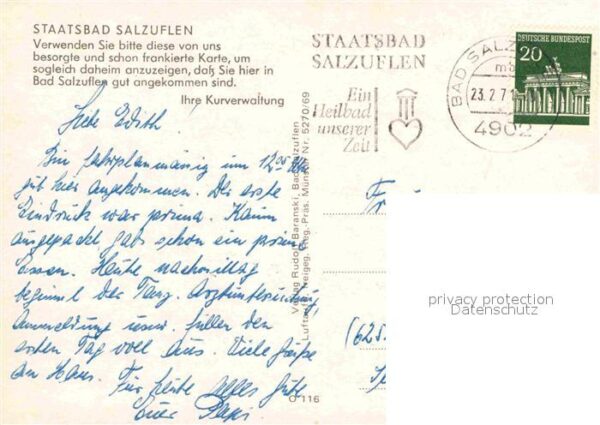 STAATSBAD SALZUFLEN
Verwenden Sie bitte diese von uns
besorgte und schon frankierte Karte, um
sogleich daheim anzuzeigen, daß Sie hier in
Bad Salzuflen gut angekommen sind.
Ihre Kurverwaltung
STAATSBAD
SALZUFLEN
Ein
Heilbad
unserer
Zeit
BAD SALZ
23.2.7
4902
20
DEUTSCHE BUNDESPOST
Liebe Edith!
Bin fahrplanmässig um 12.05 Uhr
gut hier angekommen. Der erste
Eindruck war prima. Kaum
ausgepackt gabs schon ein prima
Essen. Heute nachmittag
beginnt der Tanz. Arztuntersuchung,
Anmeldung usw. füllen den
ersten Tag voll aus. Viele Grüße
an Haus. Für heute alles Gute
Euer Papi
Verlag Rudolf Baranski, Bad Salzuflen
Luftaufn. freigeg. Reg.-Präs. Münster Nr. 5270/69
O 116
Fr
(625
privacy protection
Datenschutz